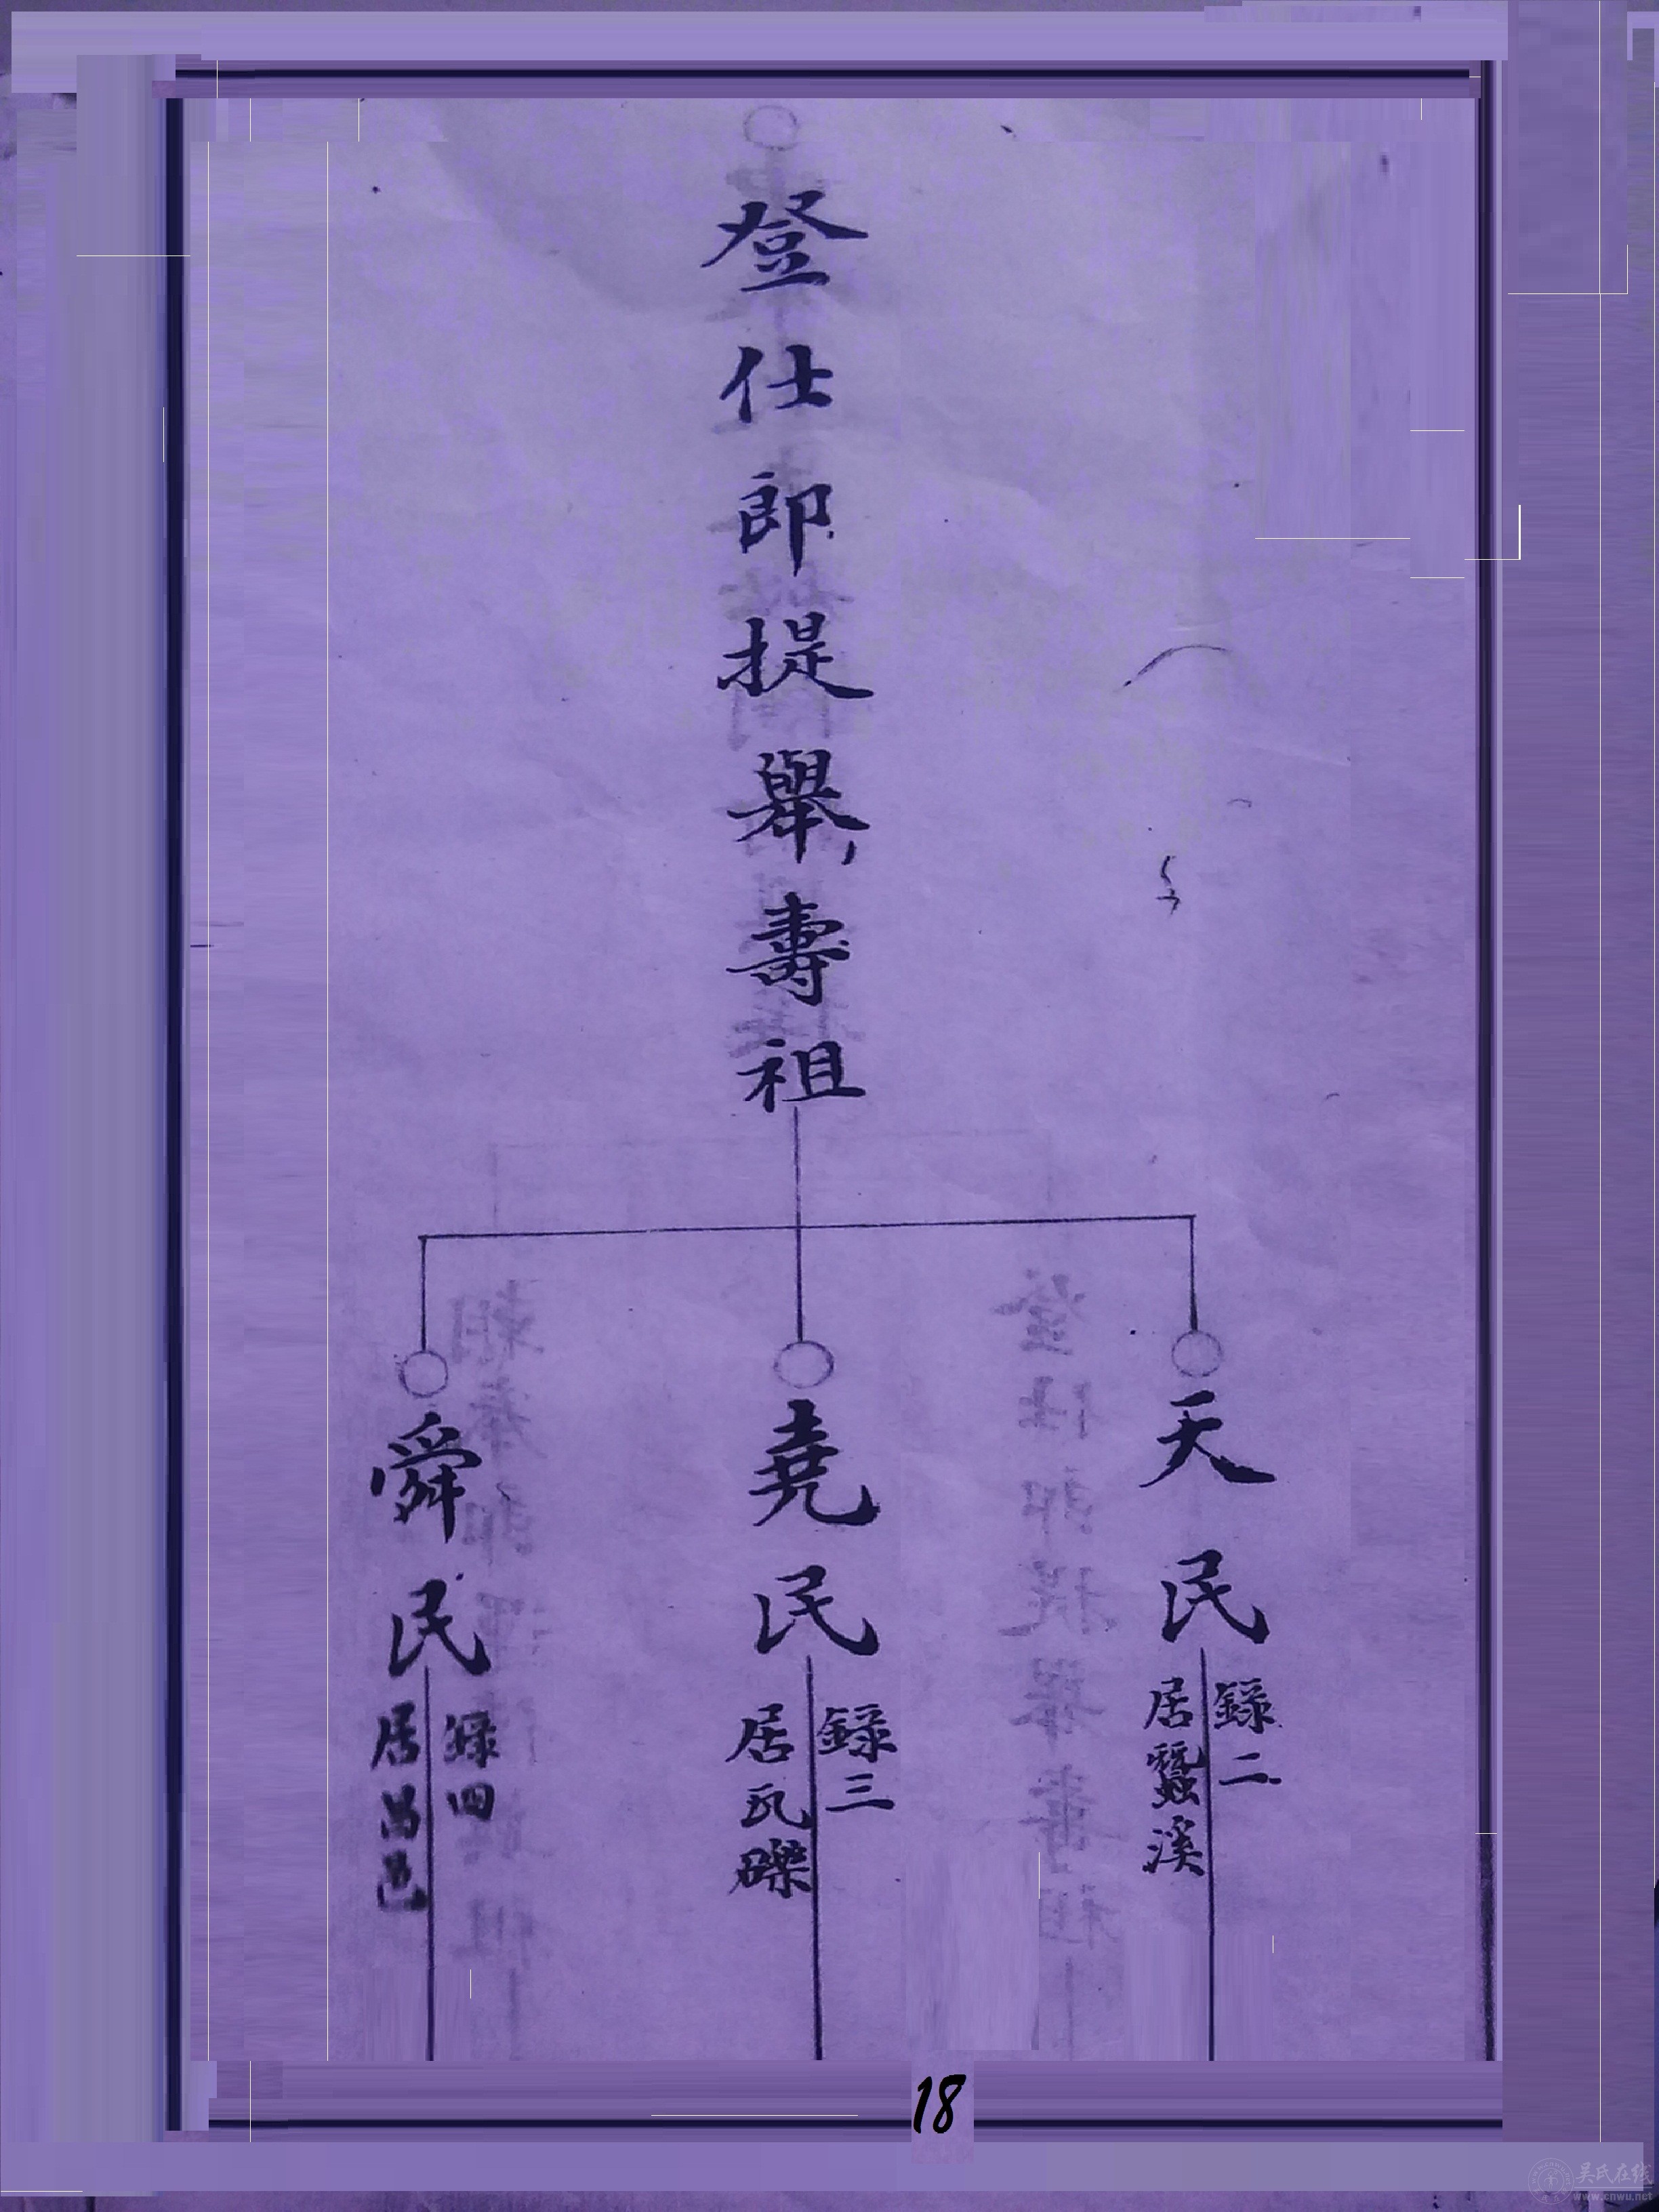 登仕郎提舉壽祖
天民
錄二
居蠶溪
堯民
錄三
居瓦礫
舜民
錄四
居昌邑
18
吴氏在线
www.cnwu.net